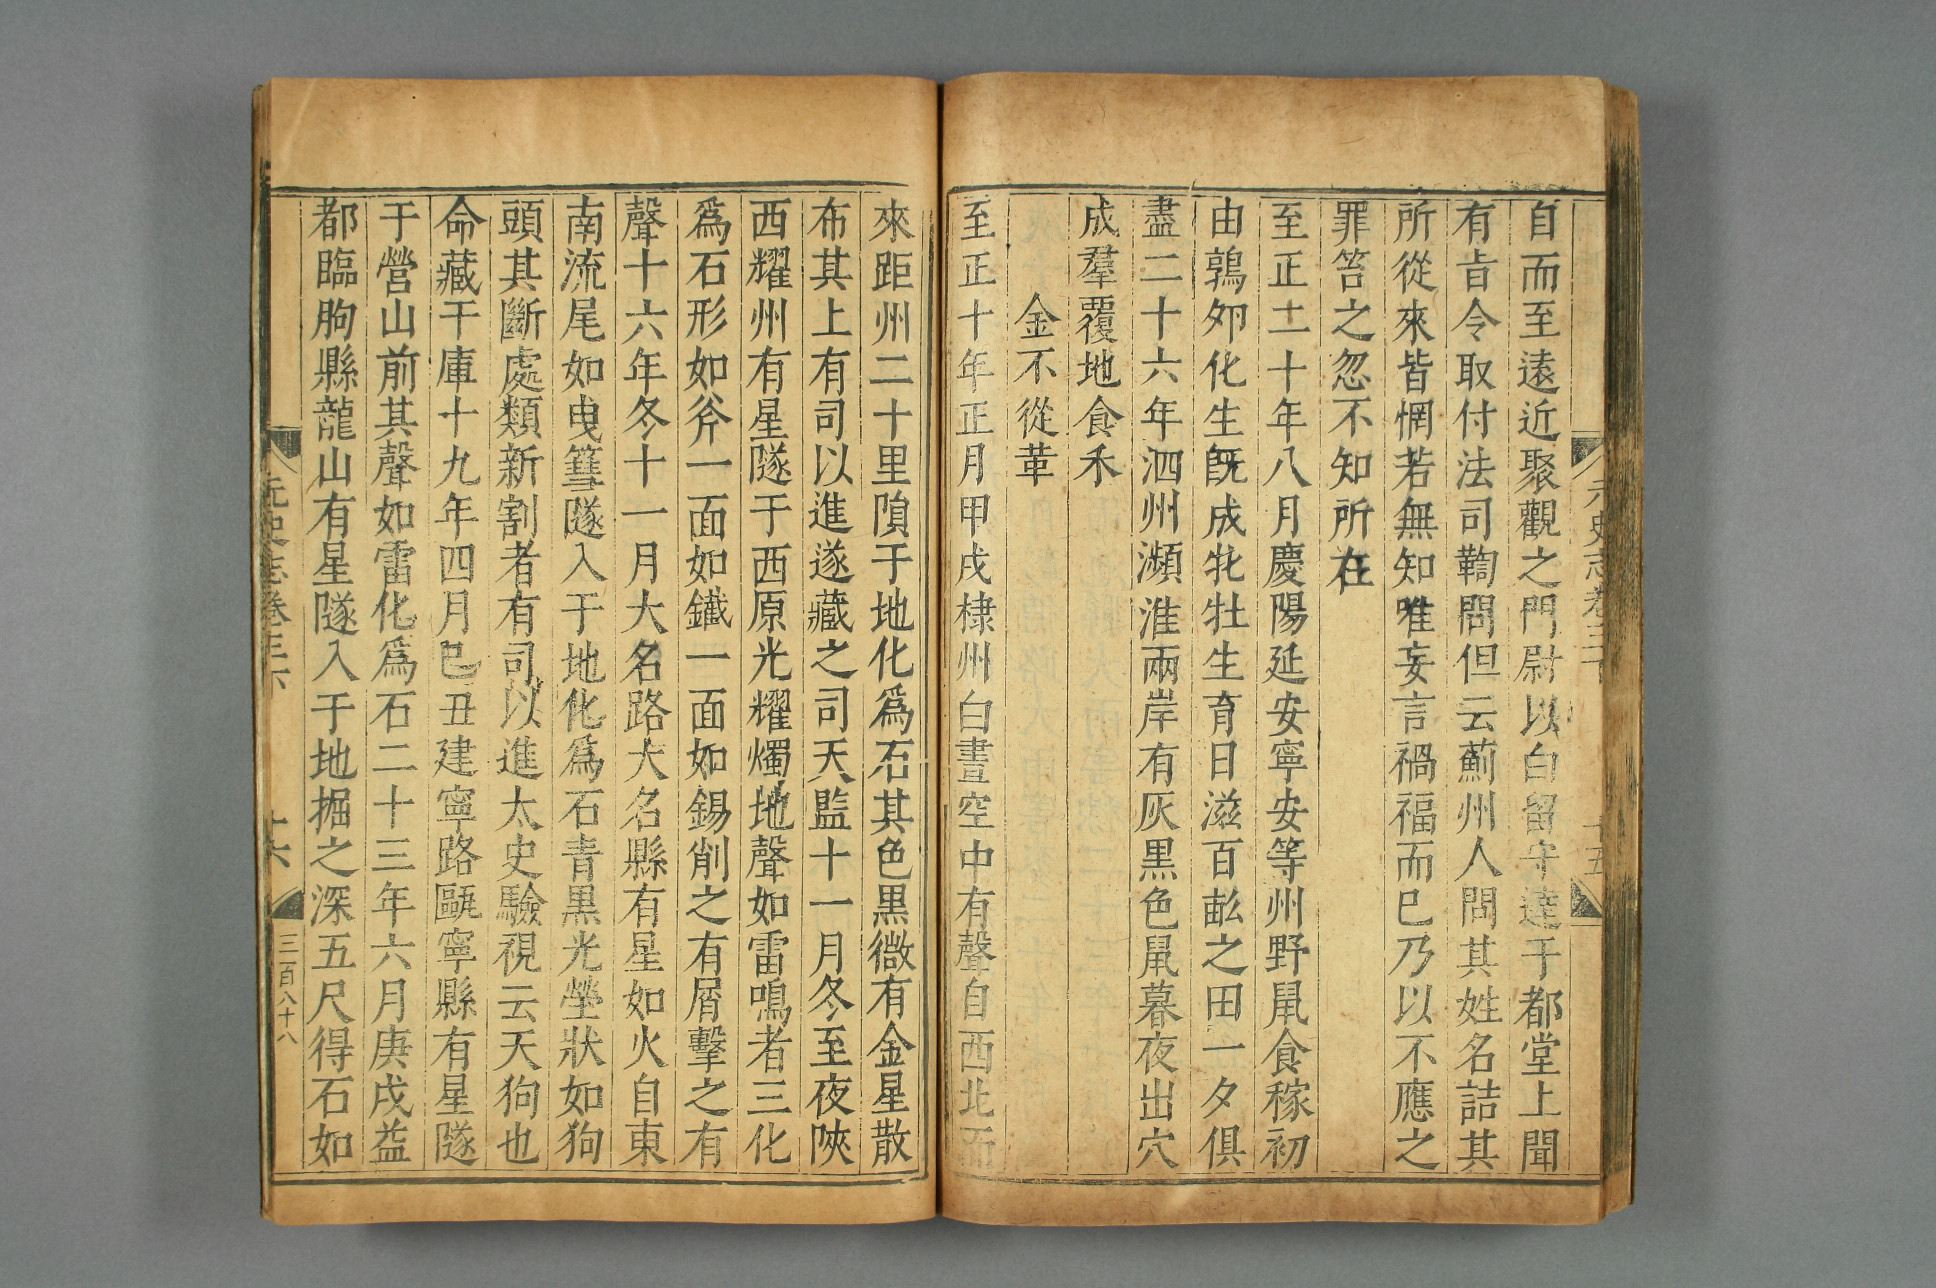 自而至遠近聚觀之門尉以白留守達于都堂上聞
有旨令取付法司鞫問但云薊州人問其姓名詰其
所從來皆惘若無知唯妄言禍福而巳乃以不應之
罪笞之忽不知所在
至正二十年八月慶陽延安寧安等州野鼠食稼初
由鶉夘化生旣成牝牡生育日滋百畝之田一夕俱
盡二十六年泗州瀕淮兩岸有灰黒色鼠暮夜出穴
成羣覆地食禾
金不從革
至正十年正月甲戌棣州白晝空中有聲自西北而
來距州二十里隕于地化爲石其色黒微有金星散
布其上有司以進遂藏之司天監十一月冬至夜陝
西耀州有星隧于西原光耀燭地聲如雷鳴者三化
爲石形如斧一面如鐵一面如錫削之有屑擊之有
聲十六年冬十一月大名路大名縣有星如火自東
南流尾如曳篲隧入于地化爲石青黒光瑩狀如狗
頭其斷處類新割者有司以進太史驗視云天狗也
命藏于庫十九年四月巳丑建寧路甌寧縣有星隧
于營山前其聲如雷化爲石二十三年六月庚戌益
都臨朐縣龍山有星隧入于地掘之深五尺得石如
元史志卷三
十五
元史志卷三
十六
三百八十八